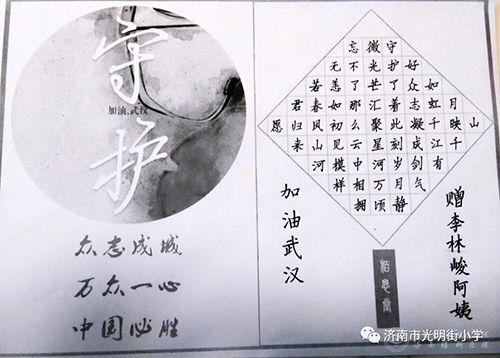 守护
加油,武汉
众志成城
万众一心
中国必胜
忘微守
无不光护好
若恙了芒了众如
君春如那汇着志虹月
愿归风初么聚此凝千映山
来山见云星刻成江千
河模中河岁剑有
样相万月气
拥顷静
加油武汉
赠李林峻阿姨
济南市光明街小学